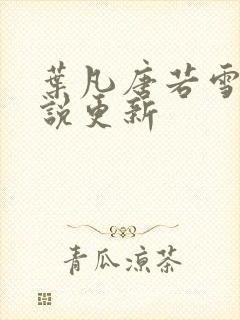 葉凡唐若雪
說更新
青瓜涼茶